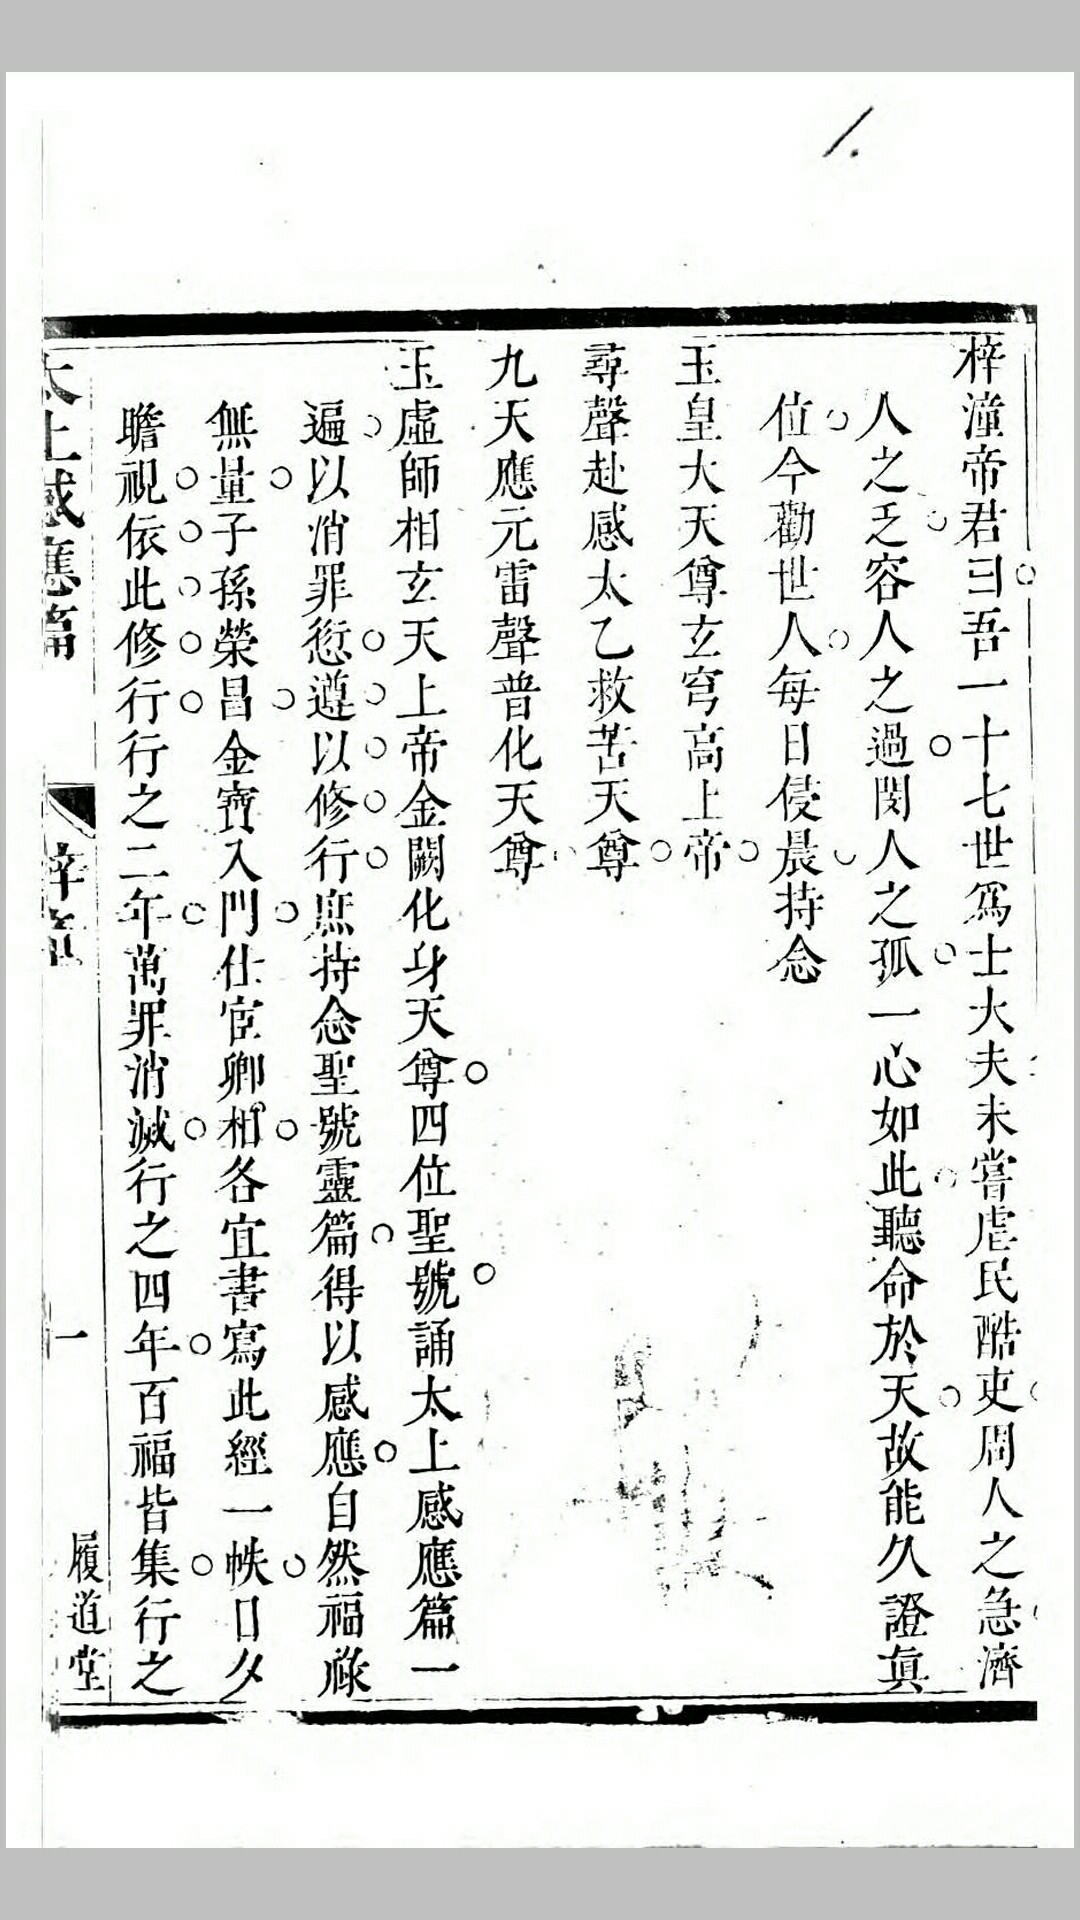 1.
梓潼帝君曰吾一十七世爲士大夫未嘗虐民酷吏周人之急濟
人之乏容人之過閔人之孤一心如此聽命於天故能久證眞
位今勸世人每日侵晨持念
玉皇大天尊玄穹高上帝
尋聲赴感太乙救苦天尊
九天應元雷聲普化天尊
玉虛師相玄天上帝金闕化身天尊四位聖號誦太上感應篇一
遍以消罪愆遵以修行庶持念聖號靈篇得以感應自然福祿
無量子孫榮昌金寶入門仕宦卿相各宜書寫此經一帙日夕
瞻視依此修行行之二年萬罪消滅行之四年百福皆集行之
太上感應篇
梓童
一
履道堂